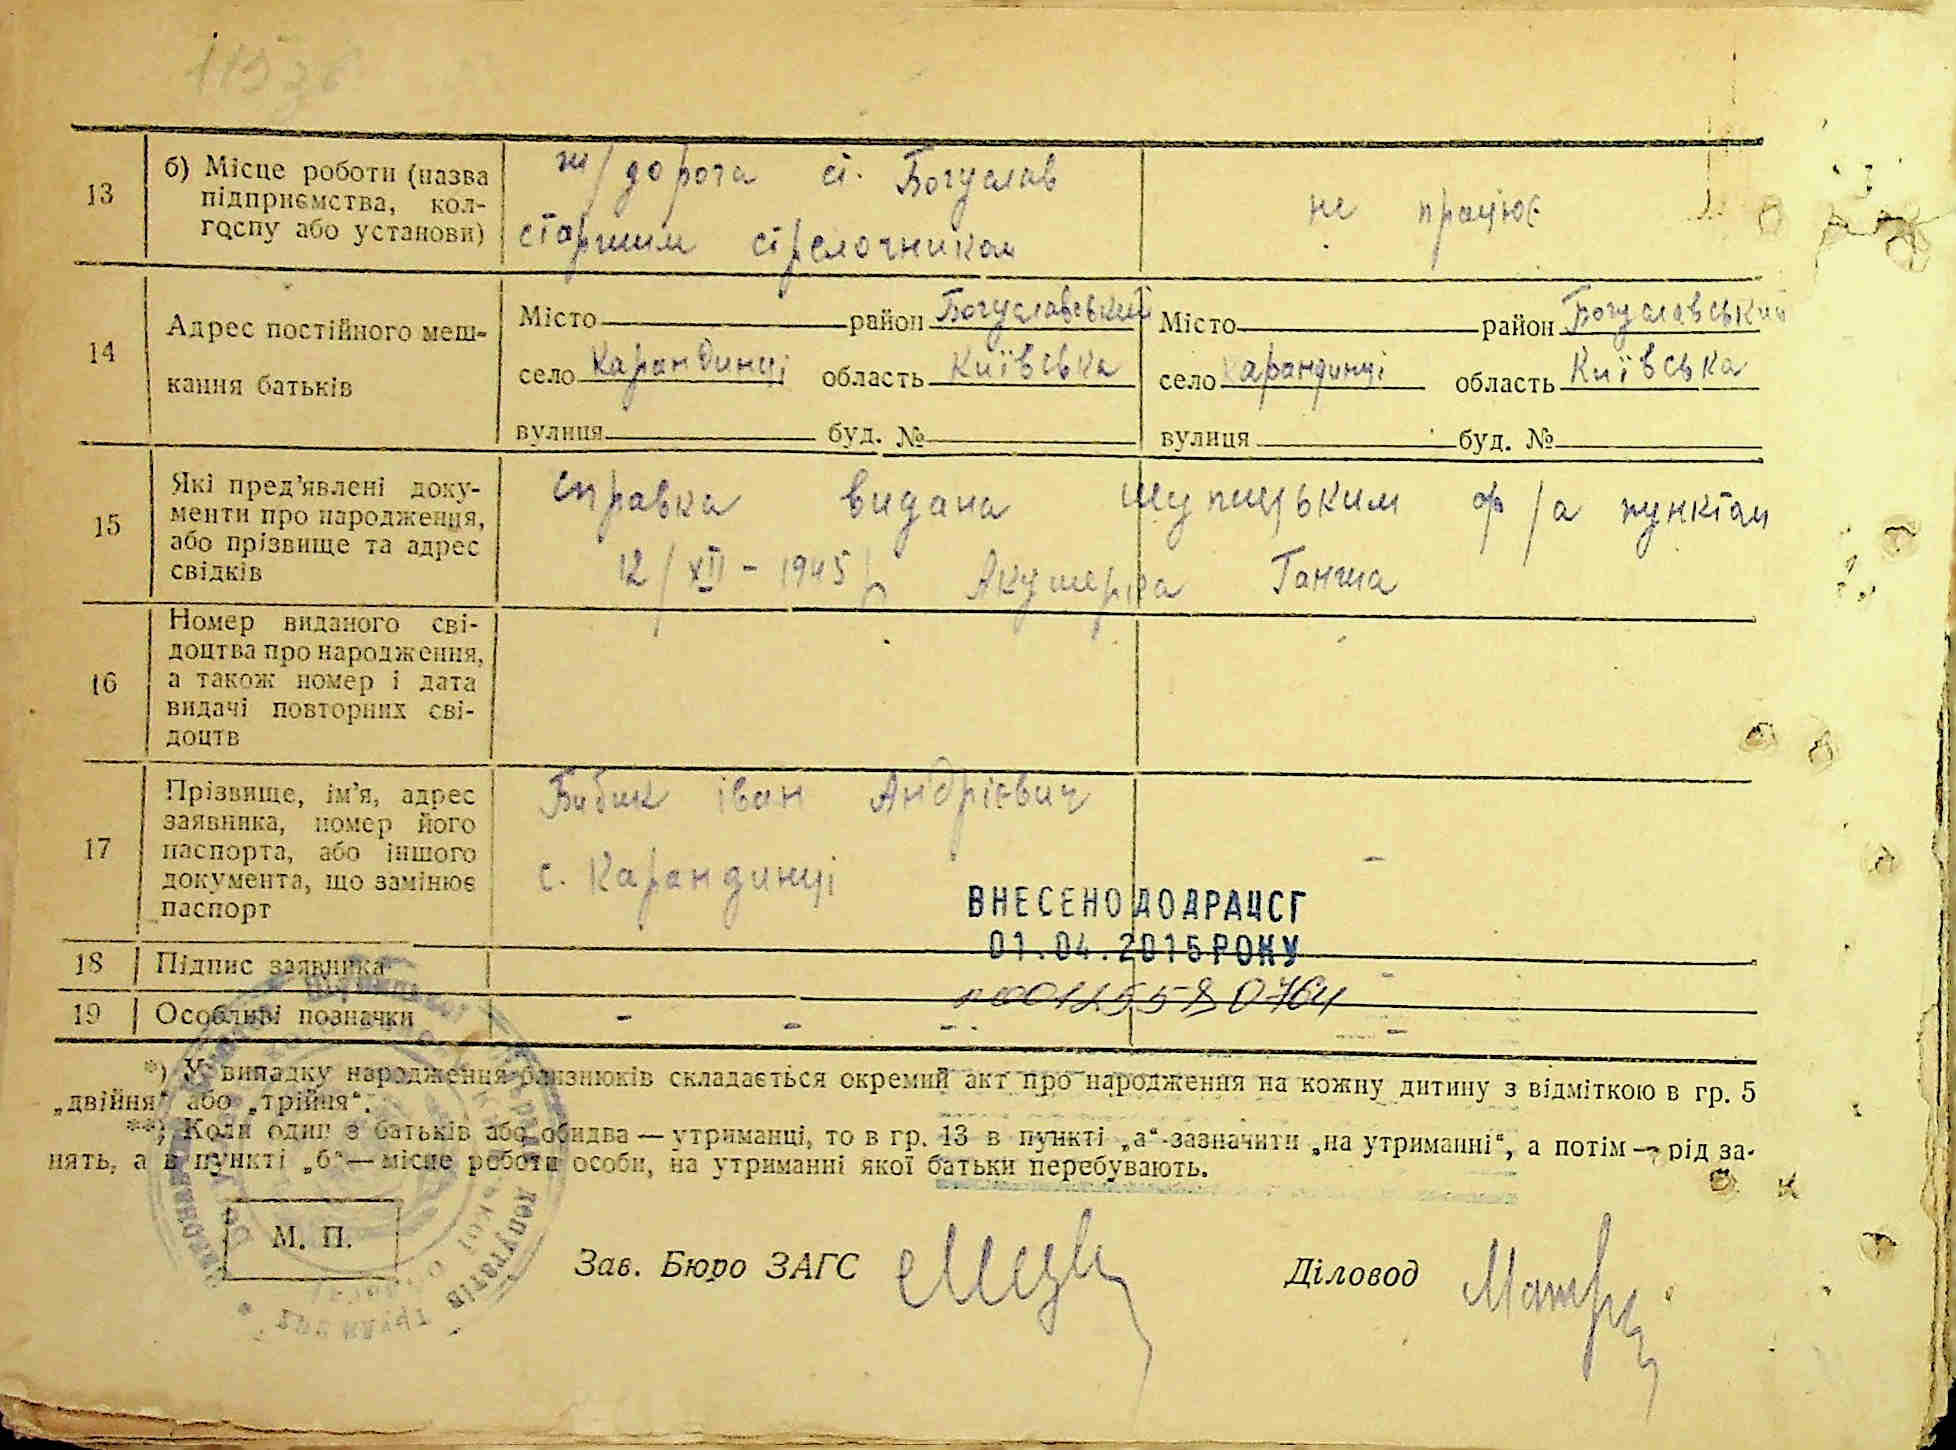 13
б) Місце роботи (назва
підприємства, кол-
госпу або установи)
ж/дорога ст. Богуслав
старшим стрелочником
не працює
14
Адрес постійного меш-
кання батьків
Місто район Богуславський
село Карандинці область Київська
вулиця буд. №
Місто район Богуславський
село Карандинці область Київська
вулиця буд. №
15
Які пред'явлені доку-
менти про народження,
або прізвище та адрес
свідків
справка видана шупицьким ф/а пунктом
12/XII - 1945 р Акушерка Ганжа
16
Номер виданого сві-
доцтва про народження,
а також номер і дата
видачі повторних сві-
доцтв
17
Прізвище, ім'я, адрес
заявника, номер його
паспорта, або іншого
документа, що замінює
паспорт
Бибик іван Андрієвич
с. Карандинці
ВНЕСЕНО ДО ДРАЦСГ
01.04.2015 РОКУ
18
Підпис заявника
19
Особливі позначки
- - - -
*) У випадку народження близнюків складається окремий акт про народження на кожну дитину з відміткою в гр. 5
„двійня" або „трійня".
**) Коли один з батьків або обидва — утриманці, то в гр. 13 в пункті „а" зазначити „на утриманні", а потім — рід за-
нять, а в пункті „б" — місце роботи особи, на утриманні якої батьки перебувають.
М. П.
Зав. Бюро ЗАГС
Діловод